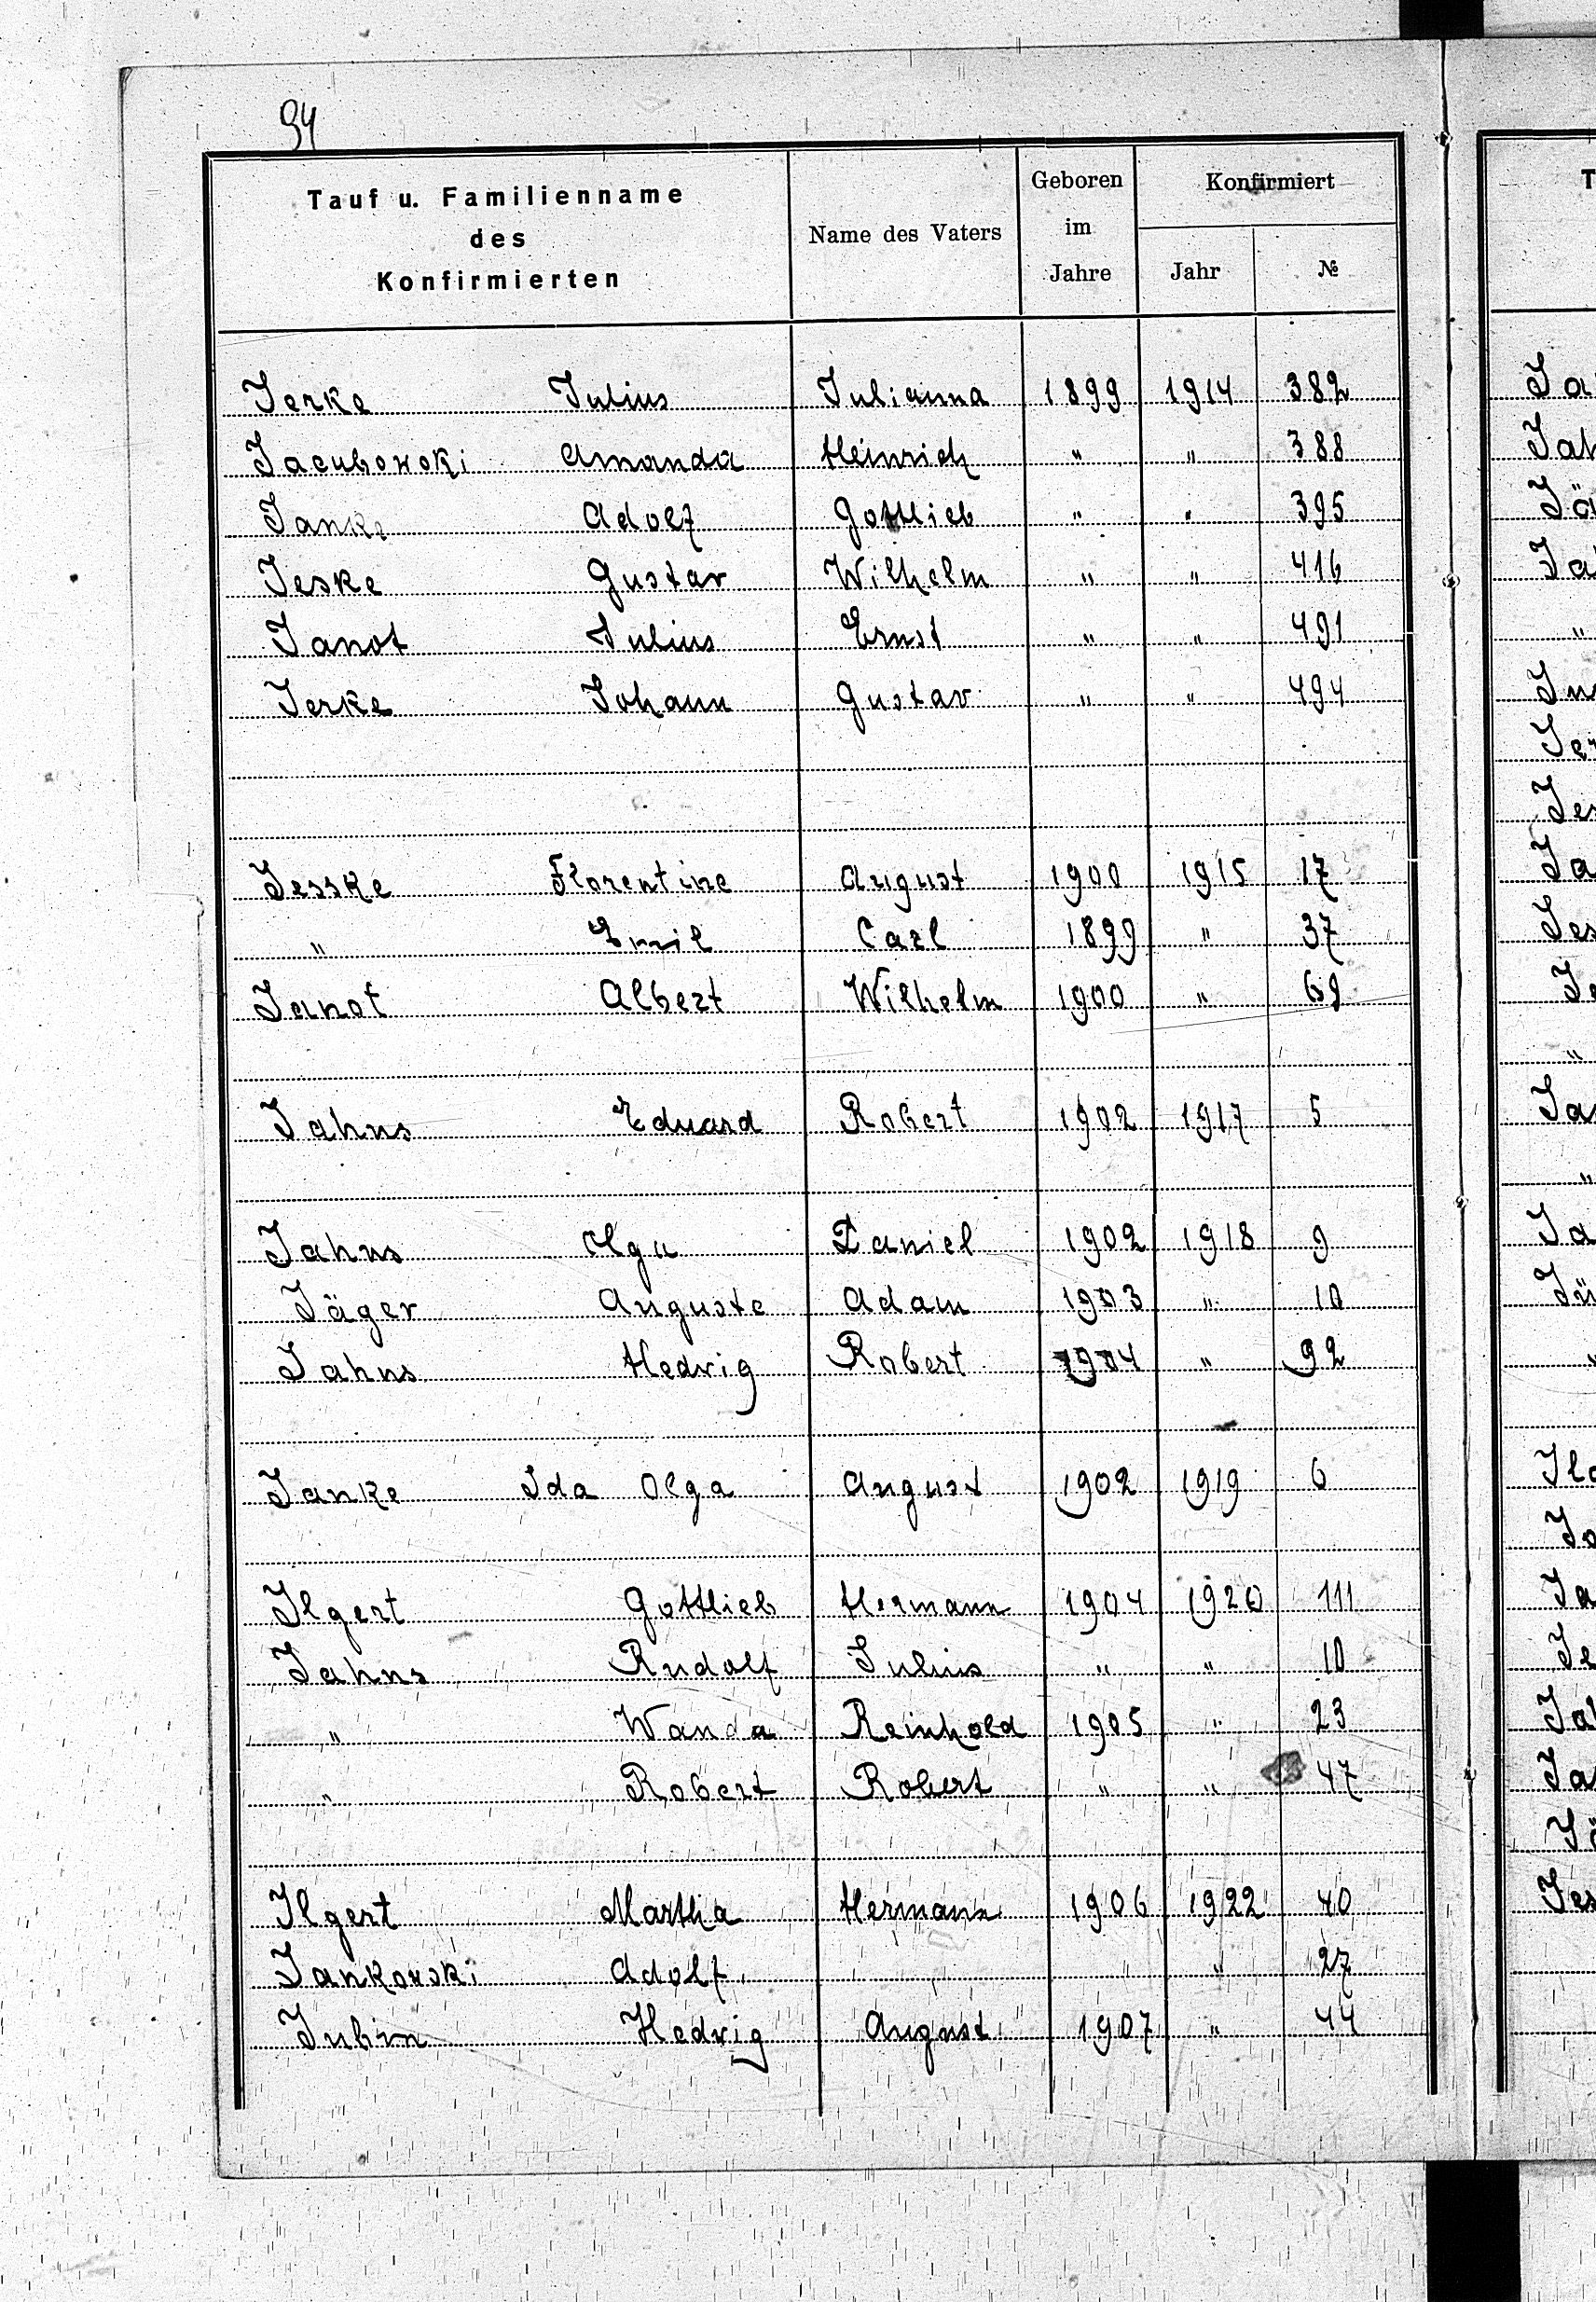 94
Tauf u. Familienname
des
Konfirmierten
Name des Vaters
Geboren
im
Jahre
Konfirmiert
Jahr
№
Jerke Julius Julianna 1899 1914 382
Jacubowski Amanda Heinrich " " 388
Janke Adolf Gottlieb " " 395
Jeske Gustav Wilhelm " " 416
Janot Julius Ernst " " 491
Jerke Johann Gustav " " 494
Jesske Florentine August 1900 1915 17
" Emil Carl 1899 " 37
Janot Albert Wilhelm 1900 " 69
Jahns Eduard Robert 1902 1917 5
Jahns Olga Daniel 1902 1918 9
Jäger Auguste Adam 1903 " 10
Jahns Hedwig Robert 1904 " 92
Janke Ida Olga August 1902 1919 6
Ilgert Gottlieb Hermann 1904 1920 111
Jahns Rudolf Julius " " 10
" Wanda Reinhold 1905 " 23
" Robert Robert " " 47
Ilgert Martha Hermann 1906 1922 40
Jankowski Adolf " 27
Jubin Hedwig August 1907 " 44